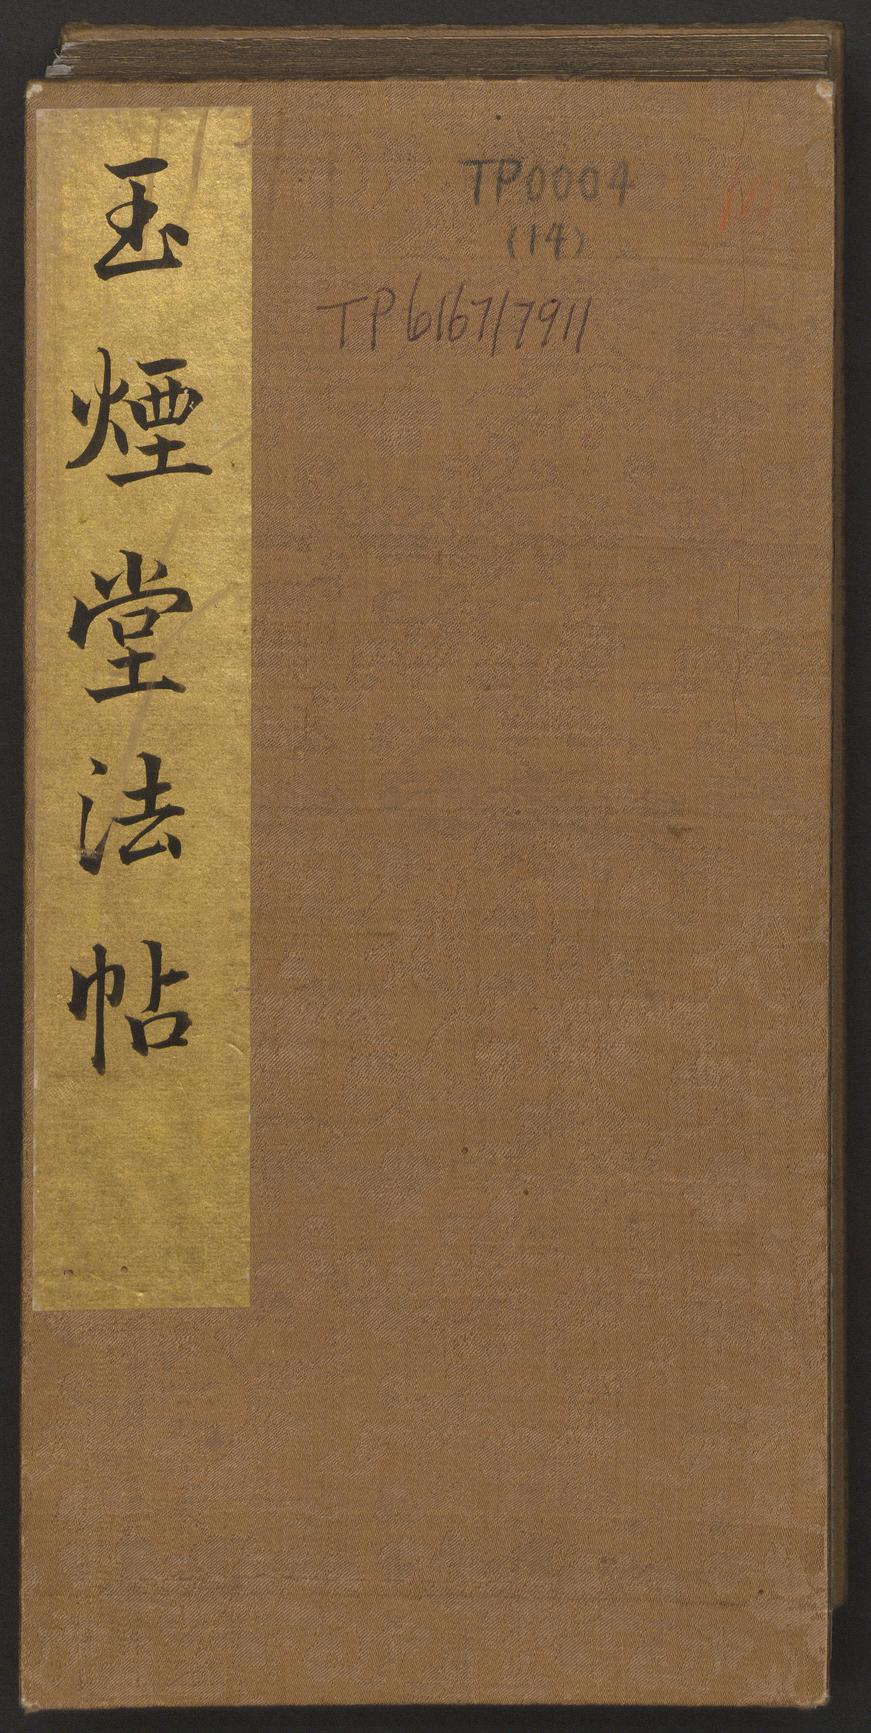 玉煙堂法帖
TP0004
(14)
TP6167/7911